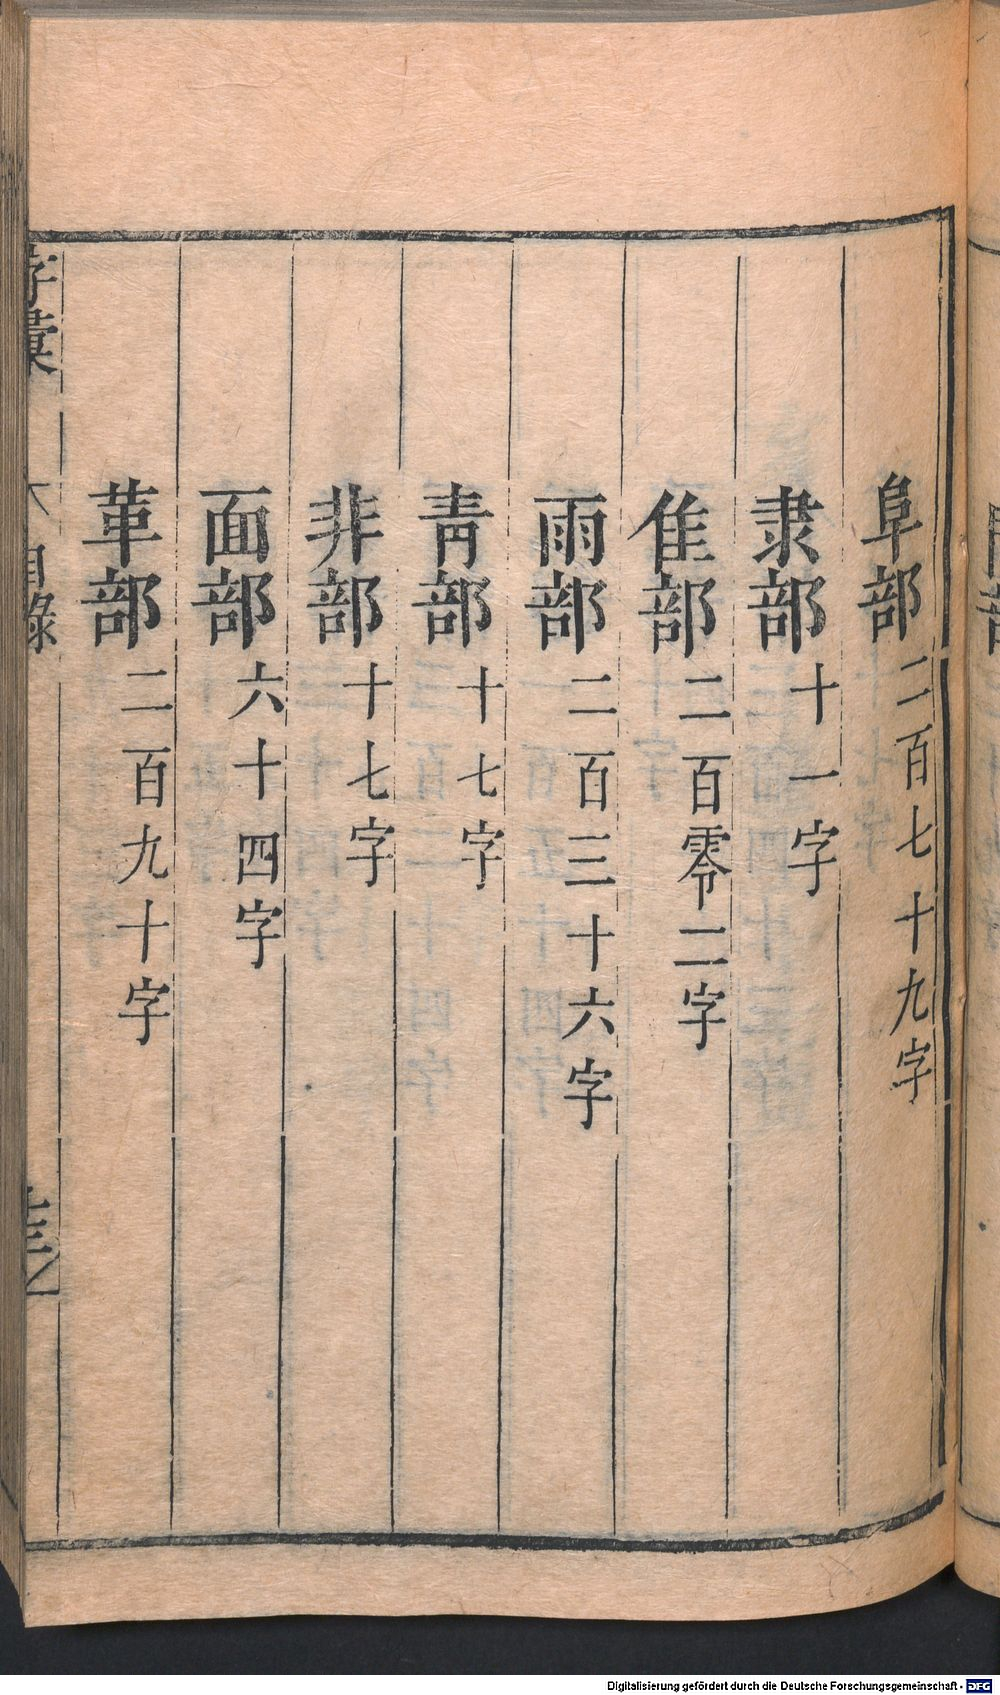 阜部 二百七十九字
隶部 十一字
隹部 二百零二字
雨部 二百三十六字
靑部 十七字
非部 十七字
面部 六十四字
革部 二百九十字
字彙
目錄
Digitalisierung gefördert durch die Deutsche Forschungsgemeinschaft - DFG